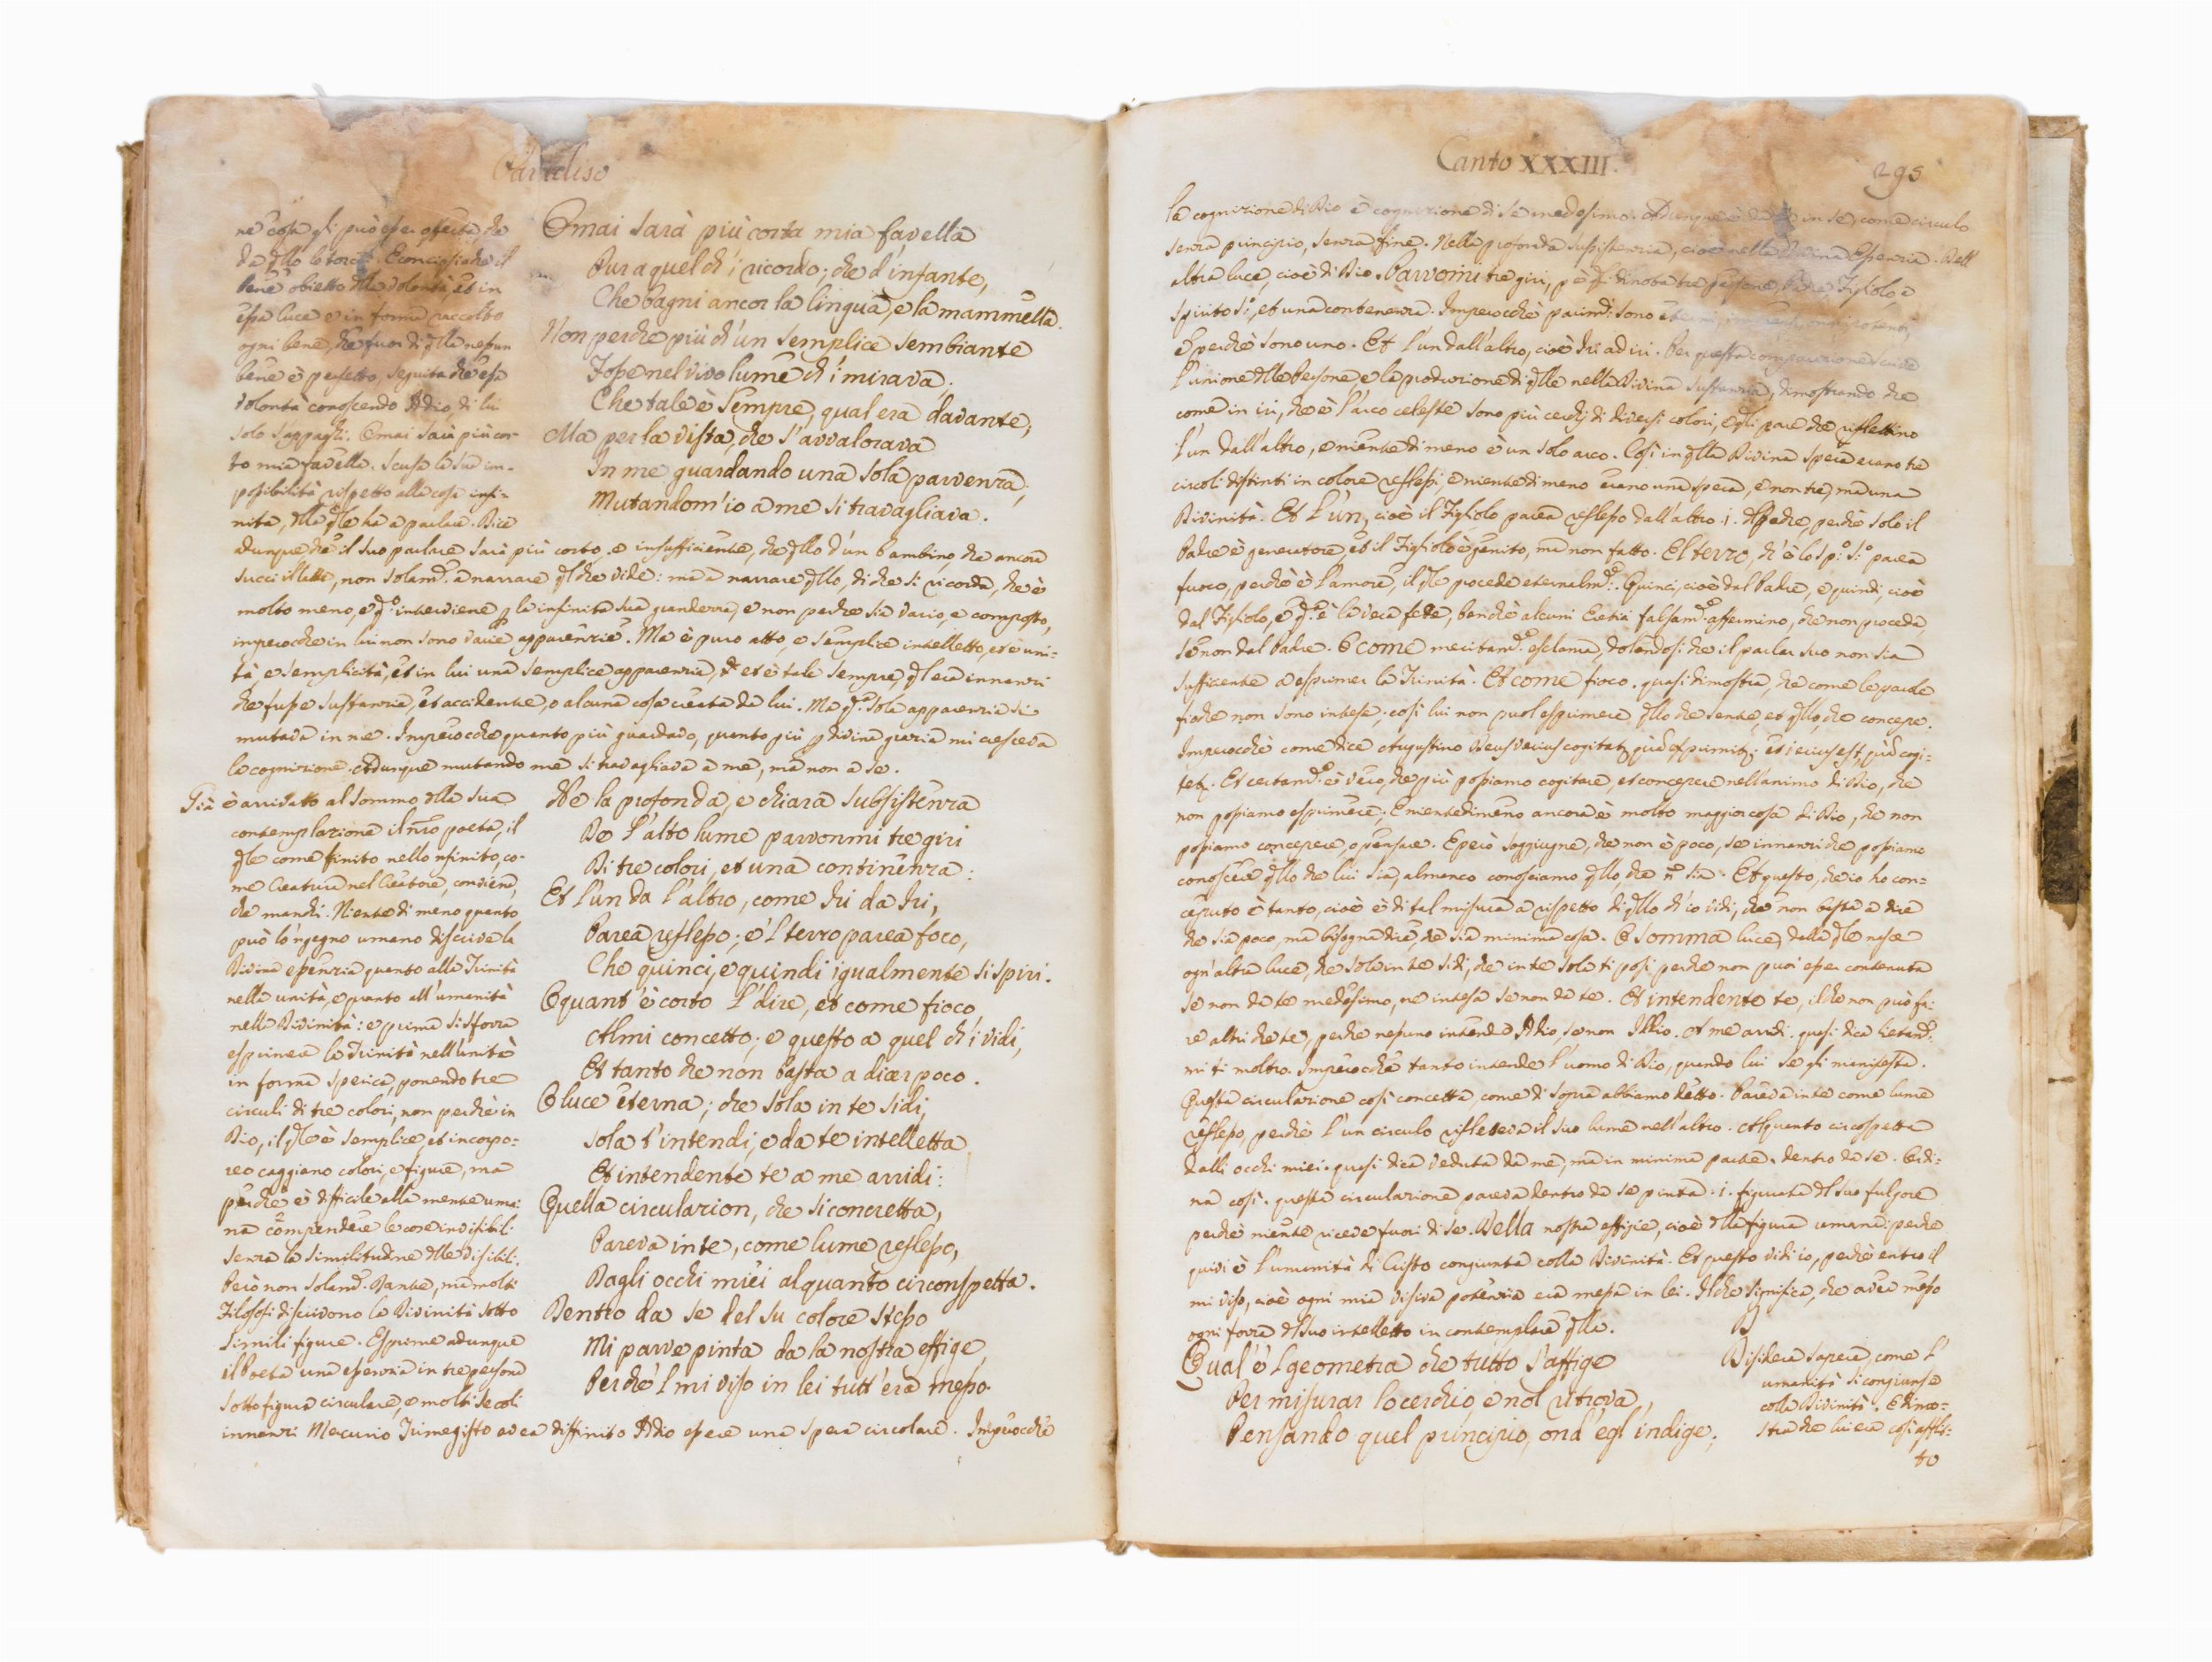 Paradiso
ne cosa gli può esser offerta, che
da qllo lo torca. E conciosiache il
bene obietto dlla volontà, et in
essa luce e in somma raccolto
ogni bene, che fuor di qlla nessun
bene è perfetto, seguita che essa
volontà conoscendo Iddio, di lui
solo s'appaghi. Omai sarà più cor-
to mia favella. scusa la sua im-
possibilità rispetto alla cosa infi-
nita, dlla qle ha a parlare. Dice
adunque che il suo parlare sarà più corto, e insufficiente, che qllo d'un bambino, che ancora
succi il latte, non solamte. a narrare ql che vide: ma a narrare qllo, di che si ricorda, che è
molto meno, e qo. interviene p la infinita sua grandezza, e non perche sia vario, e composto,
imperocche in lui non sono varie apparenzie. Ma è puro atto, e semplice intelletto, et è uni-
tà, e semplicità, et in lui una semplice apparenzia, et è tale sempre, ql era innanzi
che fusse sustanzia, et accidente, o alcuna cosa creata da lui. Ma qa. sola apparenzia si
mutava in me. Imperocche quanto più guardavo, quanto più p divina grazia mi cresceva
la cognizione. Adunque mutando me si travagliava a me, ma non a se.
Omai sarà più corta mia favella
Pur a quel ch'i ricordo; che d'infante,
Che bagni ancor la lingua, e la mammella.
Non perche più ch'un semplice sembiante
Fosse nel vivo lume ch'i mirava;
Che tale è sempre, qual era davante;
Ma per la vista, che s'avvalorava
In me guardando una sola parvenza,
Mutandom'io a me si travagliava.
Già è arrivato al sommo dlla sua
contemplazione il nro poeta, il
qle come finito nello 'nfinito, co-
me Creatura nel Creatore, conviene,
che manchi. Niente di meno quanto
può lo 'ngegno umano discrive la
Divina essenzia quanto alla Trinità
nella unità, e quanto all'umanità
nella Divinità: e prima si sforza
esprimer la Trinità nell'unità
in forma sperica, ponendo tre
circuli di tre colori, non perchè in
Dio, il qle è semplice, et incorpo-
reo caggiano colori, e figure, ma
perchè è difficile alla mente uma-
na comprendere le cose invisibili
senza la similitudine dlle visibili.
Però non solamte. Dante, ma molti
Filosofi discrivono la Divinità sotto
simili figure. Esprime adunque
il Poeta una essenzia in tre persone
sotto figura circulare, e molti secoli
innanzi Mercurio Trimegisto avea diffinito Iddio essere una spera circolare. Imperocchè
Ne la profonda, e chiara subsistenza
De l'alto lume parvonmi tre giri
Di tre colori, et una continenza:
Et l'un da l'altro, come Iri da Iri,
Parea reflesso; e 'l terzo parea foco,
Che quinci, e quindi igualmente si spiri.
O quant'è corto l'dire, et come fioco
Al mi concetto; e questo a quel ch'i vidi,
Et tanto che non basta a dicer poco.
O luce eterna; che sola in te sidi,
Sola t'intendi, e da te intelletta
Et intendente te a me arridi:
Quella circulazion, che si concretta,
Pareva in te, come lume reflesso,
Dagli occhi miei alquanto circonspetta.
Dentro da se del su colore stesso
Mi parve pinta da la nostra effige
Perche 'l mi viso in lei tutt'era messo.
Canto XXXIII.
295
la cognizione di Dio è cognizione di se medesimo. Adunque è in se, come circulo
senza principio, senza fine. Nella profonda sussistenzia, cioè nella Divina Essenzia. Dell
altra luce, cioè di Dio. Parvomi tre giri, p è qo. dinota tre persone, Padre, Figliolo, e
Spirito So., et una contenenza. Imperocchè parimti. sono
e perchè sono uno. Et l'un dall'altro, cioè Iri ad iri. Per questa comparazione
l'unione dlle Persone, e la produzione di qlle nella Divina sustanzia, dimostrando che
come in iri, che è l'arco celeste sono più cerchj di diversi colori, e gli pare che reflettino
l'un dall'altro, e niente di meno è un solo arco. Così in qlla Divina spera erano tre
circoli distinti in colore reflessi, e niente di meno erano una spera, e non tre, ma una
Divinità. Et l'un, cioè il Figliolo parea reflesso dall'altro .i. dl Padre, perchè solo il
Padre è generatore, et il Figliolo è genito, ma non fatto. El terzo, ch'è lo Spo. So. parea
fuoco, perchè è l'amore, il qle procede eternalmte. Quinci, cioè dal Padre, e quindi, cioè
dal Figliolo, e qa. è la vera fede, benchè alcuni Eretici falsamte. affermino, che non proceda,
se non dal Padre. O come meritamte. esclama, dolendosi che il parlar suo non sia
sufficiente a esprimer la Trinità. Et come fioco. quasi dimostra, che come le parole
fioche non sono intese; così lui non puol esprimere qllo che sente, et qllo, che concepe.
Imperocchè come dice Augustino Deus verius cogitatq quã exprimitq: et verius est, quã cogi-
tetq. Et certamte. è vero, che più possiamo cogitare, et concepere nell'animo di Dio, che
non possiamo esprimere; E nientedimeno ancora è molto maggior cosa di Dio, che non
possiamo concepere, o pensare. E però soggiugne, che non è poco, se innanzi che possiamo
conoscere qllo che lui sia, almanco conosciamo qllo, che ñ sia. Et questo, che io ho con-
ceputo è tanto, cioè è di tal misura a rispetto di qllo ch'io vidi, che non basta a dire
che sia poco, ma bisogna dire, che sia minima cosa. O somma luce, dalla qle nasce
ogn'altra luce, che sola in te sidi, che in te sola ti posi, perche non puoi esser contenuta
se non da te medesimo, ne intesa se non da te. Et intendente te, il che non può fa-
re altri che te, perche nessuno intende Iddio, se non Iddio. A me arridi. quasi dica lietamte.
mi ti mostro. Imperocchè tanto intende l'uomo di Dio, quando lui se gli manifesta.
Questa circulazione così concetta, come di sopra abbiamo detto. Pareva in te come lume
reflesso, perchè l'un circulo refletteva il suo lume nell'altro. Alquanto circospetta
dalli occhi miei. quasi dica veduta da me, ma in minima parte. dentro da se. Ordi-
na così. questa circulazione pareva dentro da se pinta .i. figurata dl suo fulgore
perchè niente riceve fuori di se. Della nostra effigie, cioè dlla figura umana: perche
quivi è l'umanità di Cristo congiunta colla Divinità. Et questo vidi io, perchè entro il
mi viso, cioè ogni mia visiva potenzia era messa in lei. Il che significa, che avea messo
ogni forza dl suo intelletto in contemplare qlla.
Qual è 'l geometra che tutto s'affige
Per misurar lo cerchio, e nol ritrova,
Pensando quel principio, ond'egl'indige;
D
Disidera sapere, come l'
umanità si congiunse
colla Divinità. E dimo-
stra che lui era così afflit-
to